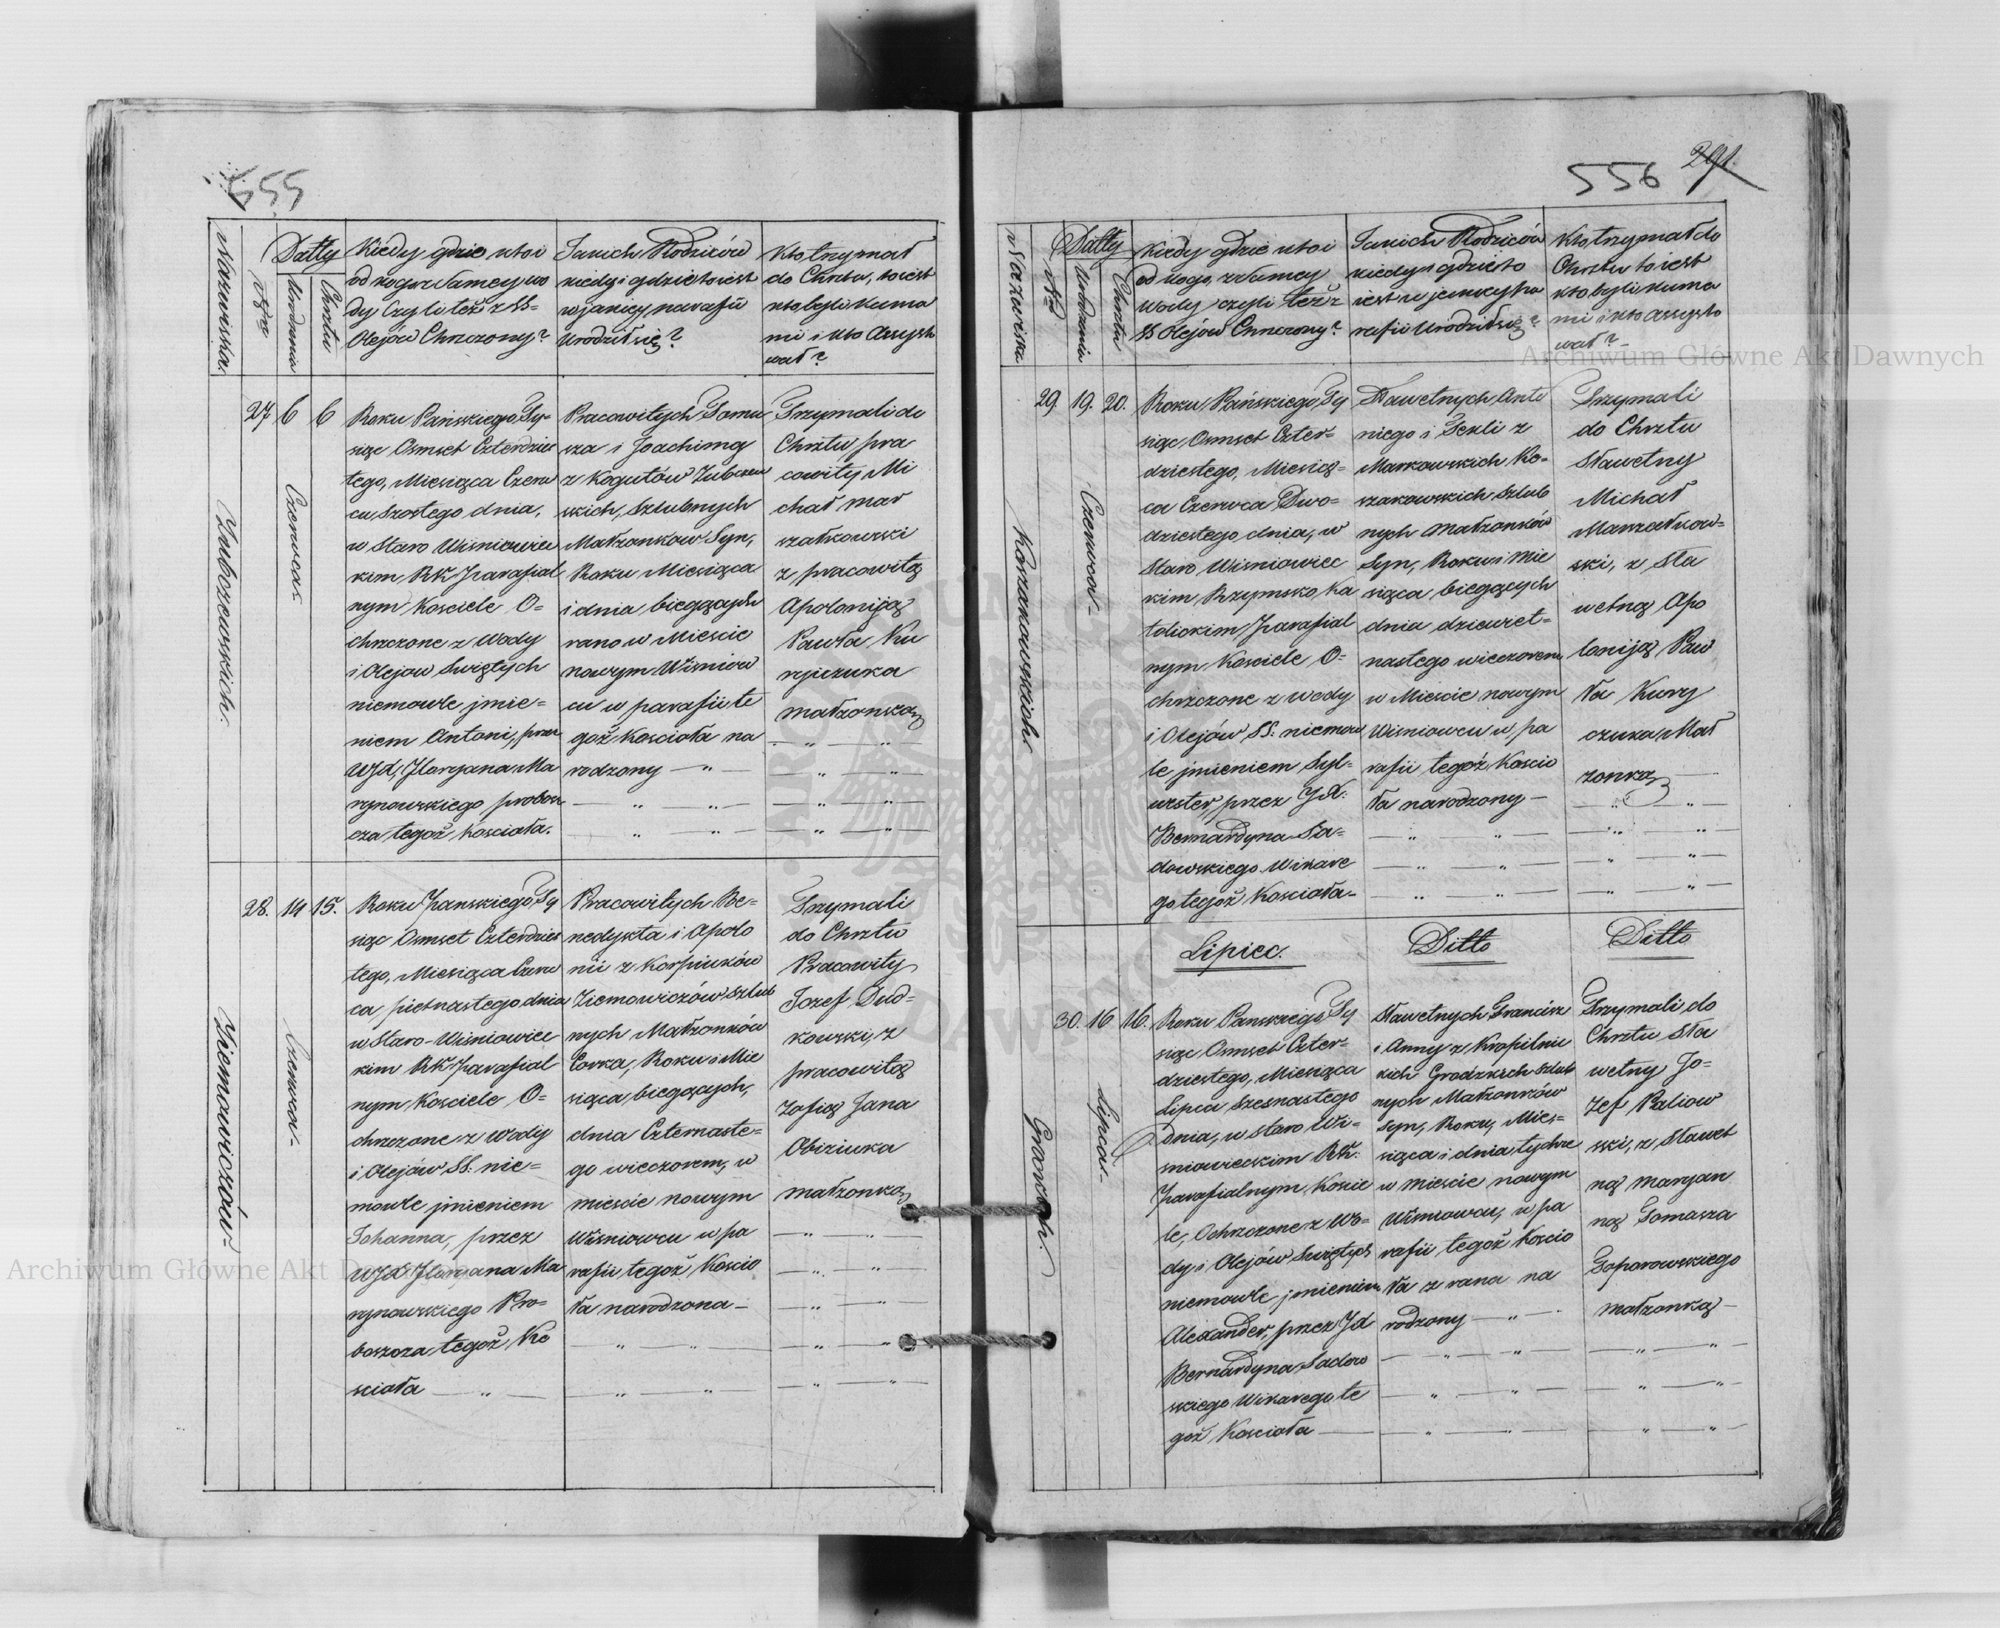 555
Nazwiska.
Nra
Datty
Urodzenia
Chrztu
Kiedy gdzie kto i
od kogo z samey wo
dy czyli też z SS=
Olejów Chrzczony?
Jakich Rodziców
kiedy i gdzie to iest
w janiey parafii
Urodził się?
Kto trzymał
do Chrztu, to iest
kto byli Kuma
mi i kto assysto
wał?
27 6 6
Zubczewskich.
Czerwca
Roku Pańskiego Ty-
siąc Osmset Czterdzies
tego, Miesiąca Czerw
ca, Szostego dnia,
w Staro Wisniowiec
kim RK Parafial
nym Kosciele O=
chrzczone z Wody
i Olejow Swiętych
niemowle jmie=
niem Antoni, przez
WJX Floryana Ma
rynowskiego probosz
cza tegoż Koscioła.
Pracowitych Toma
sza i Joachimy
z Kogutów Zubczew
skich, Szlubnych
Małzonkow Syn,
Roku Miesiąca
i dnia biegących
rano w Miescie
nowym Wisniow
cu w parafii te
goż Koscioła na
rodzony
Trzymali do
Chrztu pra
cowity Mi
chał Mar
szałkowski
z pracowitą
Apoloniją
Pawła Ku
ryczuka
małzonką
28. 14 15.
Ziemowiczów.
Czerwca.
Roku Panskiego Ty
siąc Osmset Czterdzies
tego, Miesiąca Czerw
ca pietnastego dnia
w Staro-Wisniowiec
kim RK Parafial
nym Kosciele O=
chrzczone z Wody
i Olejów SS. nie=
mowle jmieniem
Johanna, przez
WJX Floryana Ma
rynowskiego Pro=
boszcza tegoż Ko
scioła
Pracowitych Be=
nedykta i Apolo
nii z Korpiuków
Ziemowiczów Szlub
nych Małzonków
Corka, Roku i Mie
siąca biegących,
dnia Czternaste=
go wieczorem, w
miescie nowym
Wisniowcu w pa
rafii tegoż Koscio
ła narodzona
Trzymali
do Chrztu
Pracowity
Jozef Dud=
kowski, z
pracowitą
Zofią Jana
Obiziuka
małzonką
556 291.
Nazwiska
Nra
Datty
Urodzenia
Chrztu
Kiedy gdzie kto i
od kogo, z samey
Wody czyli też z
SS Olejów Chrzczony?
Jakich Rodziców
kiedy i gdzie to
iest w janiey pa
rafii Urodził się?
Kto trzymał do
Chrztu to iest
kto byli Kuma
mi i kto assysto
wał?
Archiwum Główne Akt Dawnych
29. 19. 20.
Korzanowskich
Czerwca
Roku Pańskiego Ty
siąc Osmset Czter=
dziestego, Miesią=
ca Czerwca Dwo=
dziestego dnia, w
Staro Wisniowiec
kim Rzymsko Ka
tolickim Parafial
nym Kosciele O=
chrzczone z Wody
i Olejów SS: niemow
le jmieniem Syl=
wester, przez JX:
Bernardyna Sa=
dowskiego Wikare
go tegoż Kosciola
Sławetnych Anto
niego i Tekli z
Markowskich Ko=
rzanowskich Szlub
nych Małzonków
Syn, Roku i Mie
siąca biegących
dnia dziewięt=
nastego wieczorem
w Miescie nowym
Wisniowcu w pa
rafii tegoż Koscio
ła narodzony
Trzymali
do Chrztu
Sławetny
Michał
Marszałkow=
ski, z Sła
wetną Apo
loniją Paw
ła Kury
czuka Mał
zonką
Lipiec.
Ditto
Ditto
30. 16 16.
Grodzkich.
Lipca
Roku Panskiego Ty
siąc Osmset Czter=
dziestego, Miesiąca
Lipca Szesnastego
dnia, w staro Wi=
sniowieckim RK:
Parafialnym Koscie
le, Ochrzczone z Wo=
dy i Olejów Swiętych
niemowle jmieniem
Alexander, przez JX
Bernardyna Sadow
skiego Wikarego te
goż Kosciola
Sławetnych Francisz
i Anny z Kropilnic
kich Grodzkich Szlub
nych Małzonków
Syn, Roku, Mie=
siąca i dnia tychże
w miescie nowym
Wisniowcu, w pa
rafii tegoż Koscio
ła z rana na
rodzony
Trzymali do
Chrztu Sła
wetny Jo=
zef Paliow
ski, z Sławet
ną Maryan
ną Tomasza
Toporowskiego
małzonką
Archiwum Główne Akt Dawnych